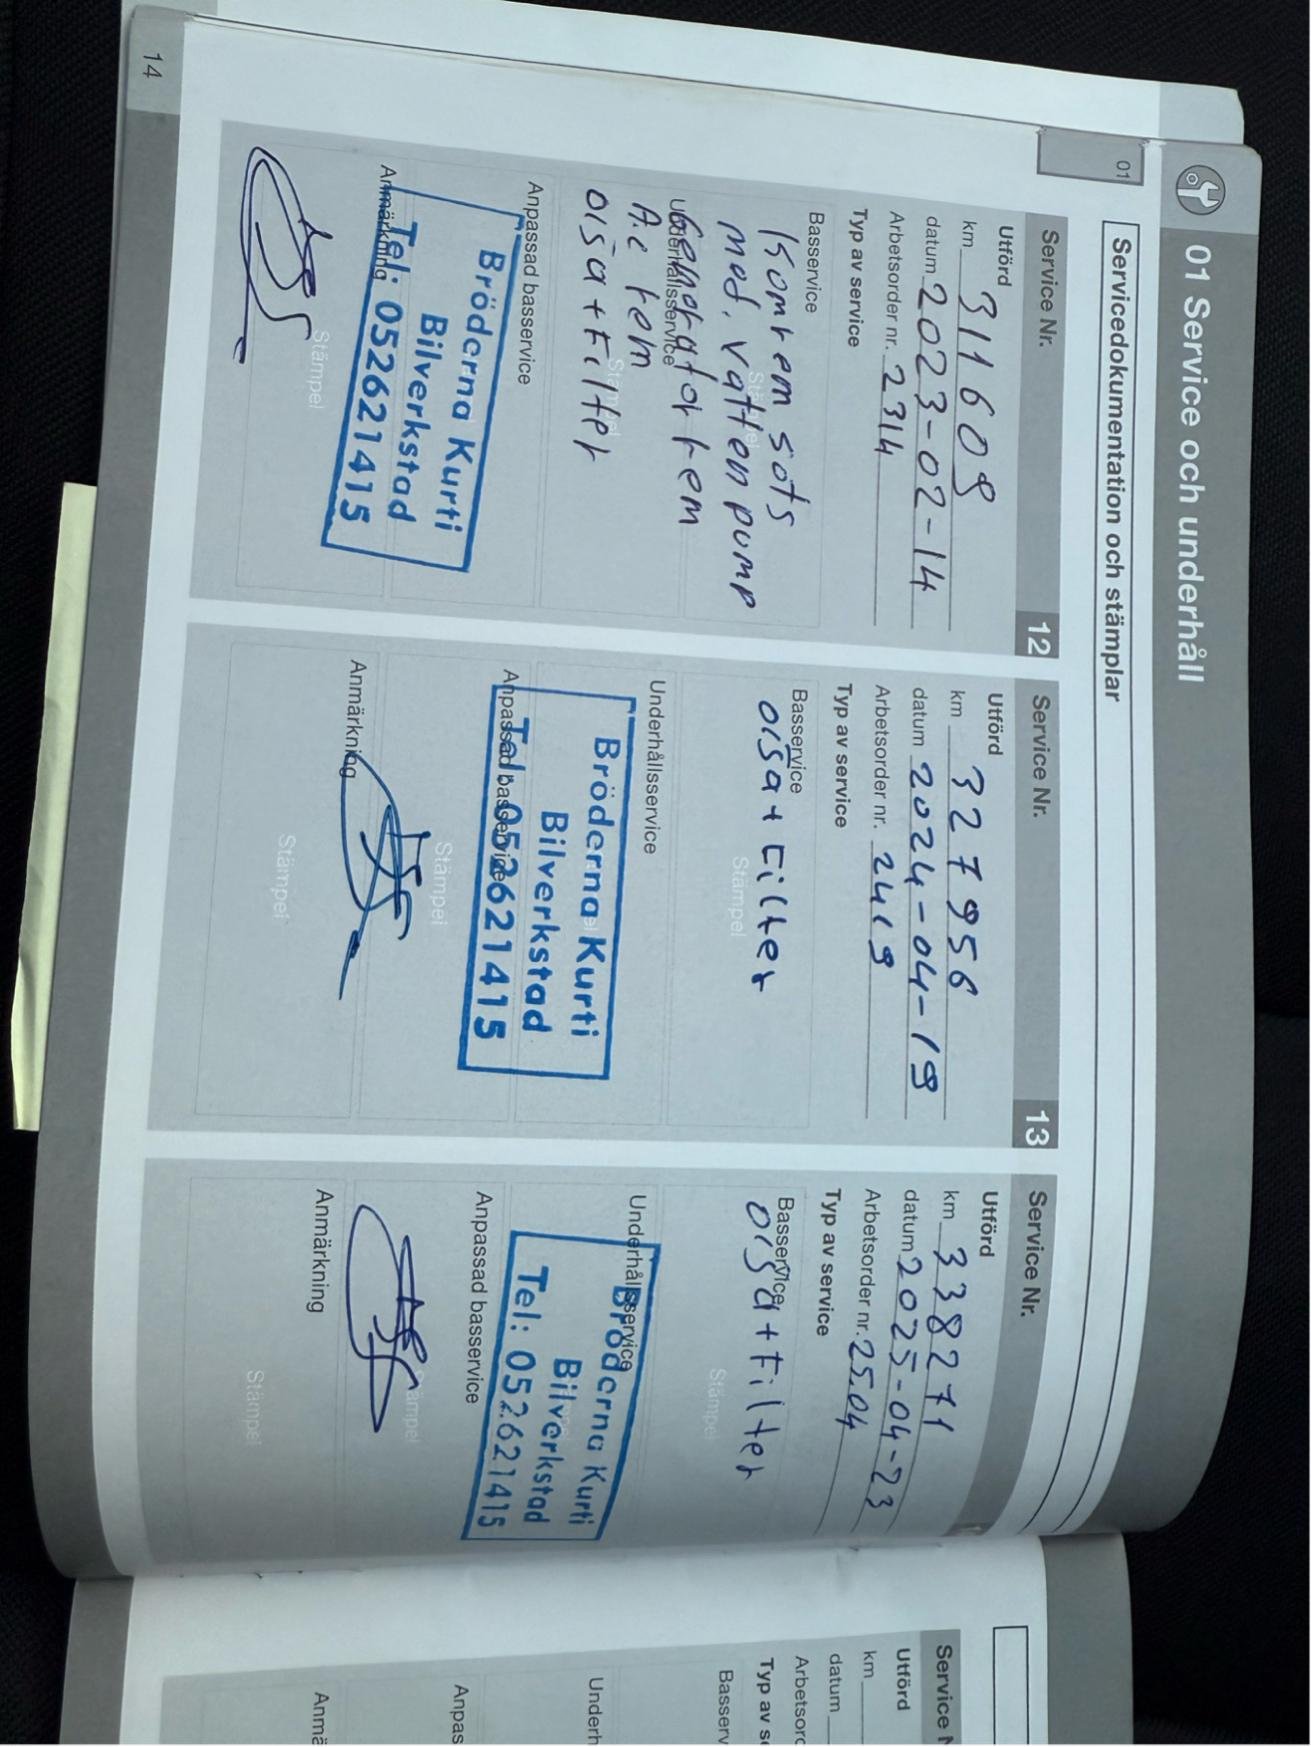 01 Service och underhåll
Servicedokumentation och stämplar
01
Service Nr. 12
Utförd
km 311609
datum 2023-02-14
Arbetsorder nr. 2314
Typ av service
Basservice
Kamrem sats
med. vattenpump
Stämpel
Underhållsservice
Generator rem
A.c rem
Stämpel
olja + Filter
Anpassad basservice
Bröderna Kurti
Bilverkstad
Tel: 052621415
Anmärkning
Stämpel
Service Nr. 13
Utförd
km 327956
datum 2024-04-19
Arbetsorder nr. 2419
Typ av service
Basservice
olja + Filter
Stämpel
Underhållsservice
Bröderna Kurti
Bilverkstad
Tel: 052621415
Anpassad basservice
Stämpel
Anmärkning
Stämpel
Service Nr.
Utförd
km 338271
datum 2025-04-23
Arbetsorder nr. 25.04
Typ av service
Basservice
olja + Filter
Stämpel
Underhållsservice
Bröderna Kurti
Bilverkstad
Tel: 052621415
Anpassad basservice
Stämpel
Anmärkning
Stämpel
14
Service N
Utförd
km
datum
Arbetsord
Typ av se
Basserv
Underh
Anpas
Anmä